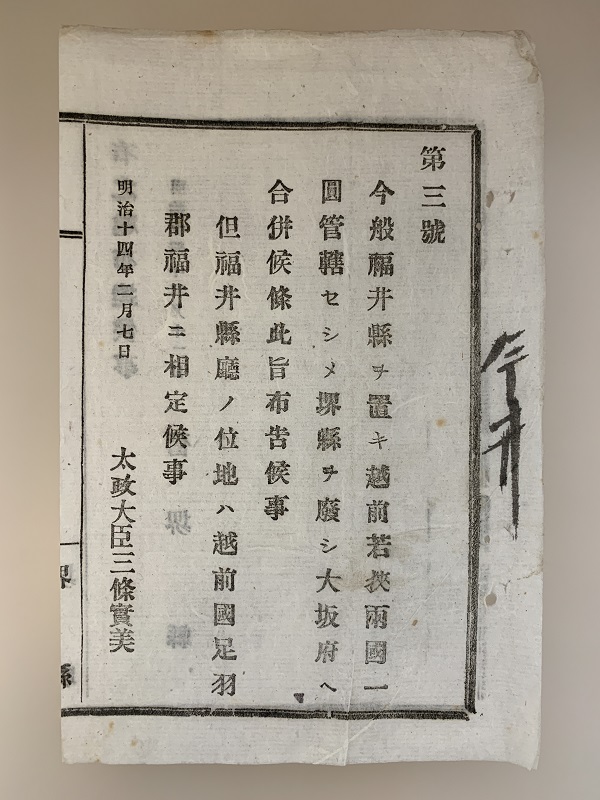 第三號
今般福井縣ヲ置キ越前若狹兩國一
圓管轄セシメ堺縣ヲ廢シ大坂府ヘ
合併候條此旨布告候事
但福井縣廳ノ位地ハ越前國足羽
郡福井ニ相定候事
明治十四年二月七日
太政大臣三條實美
今井